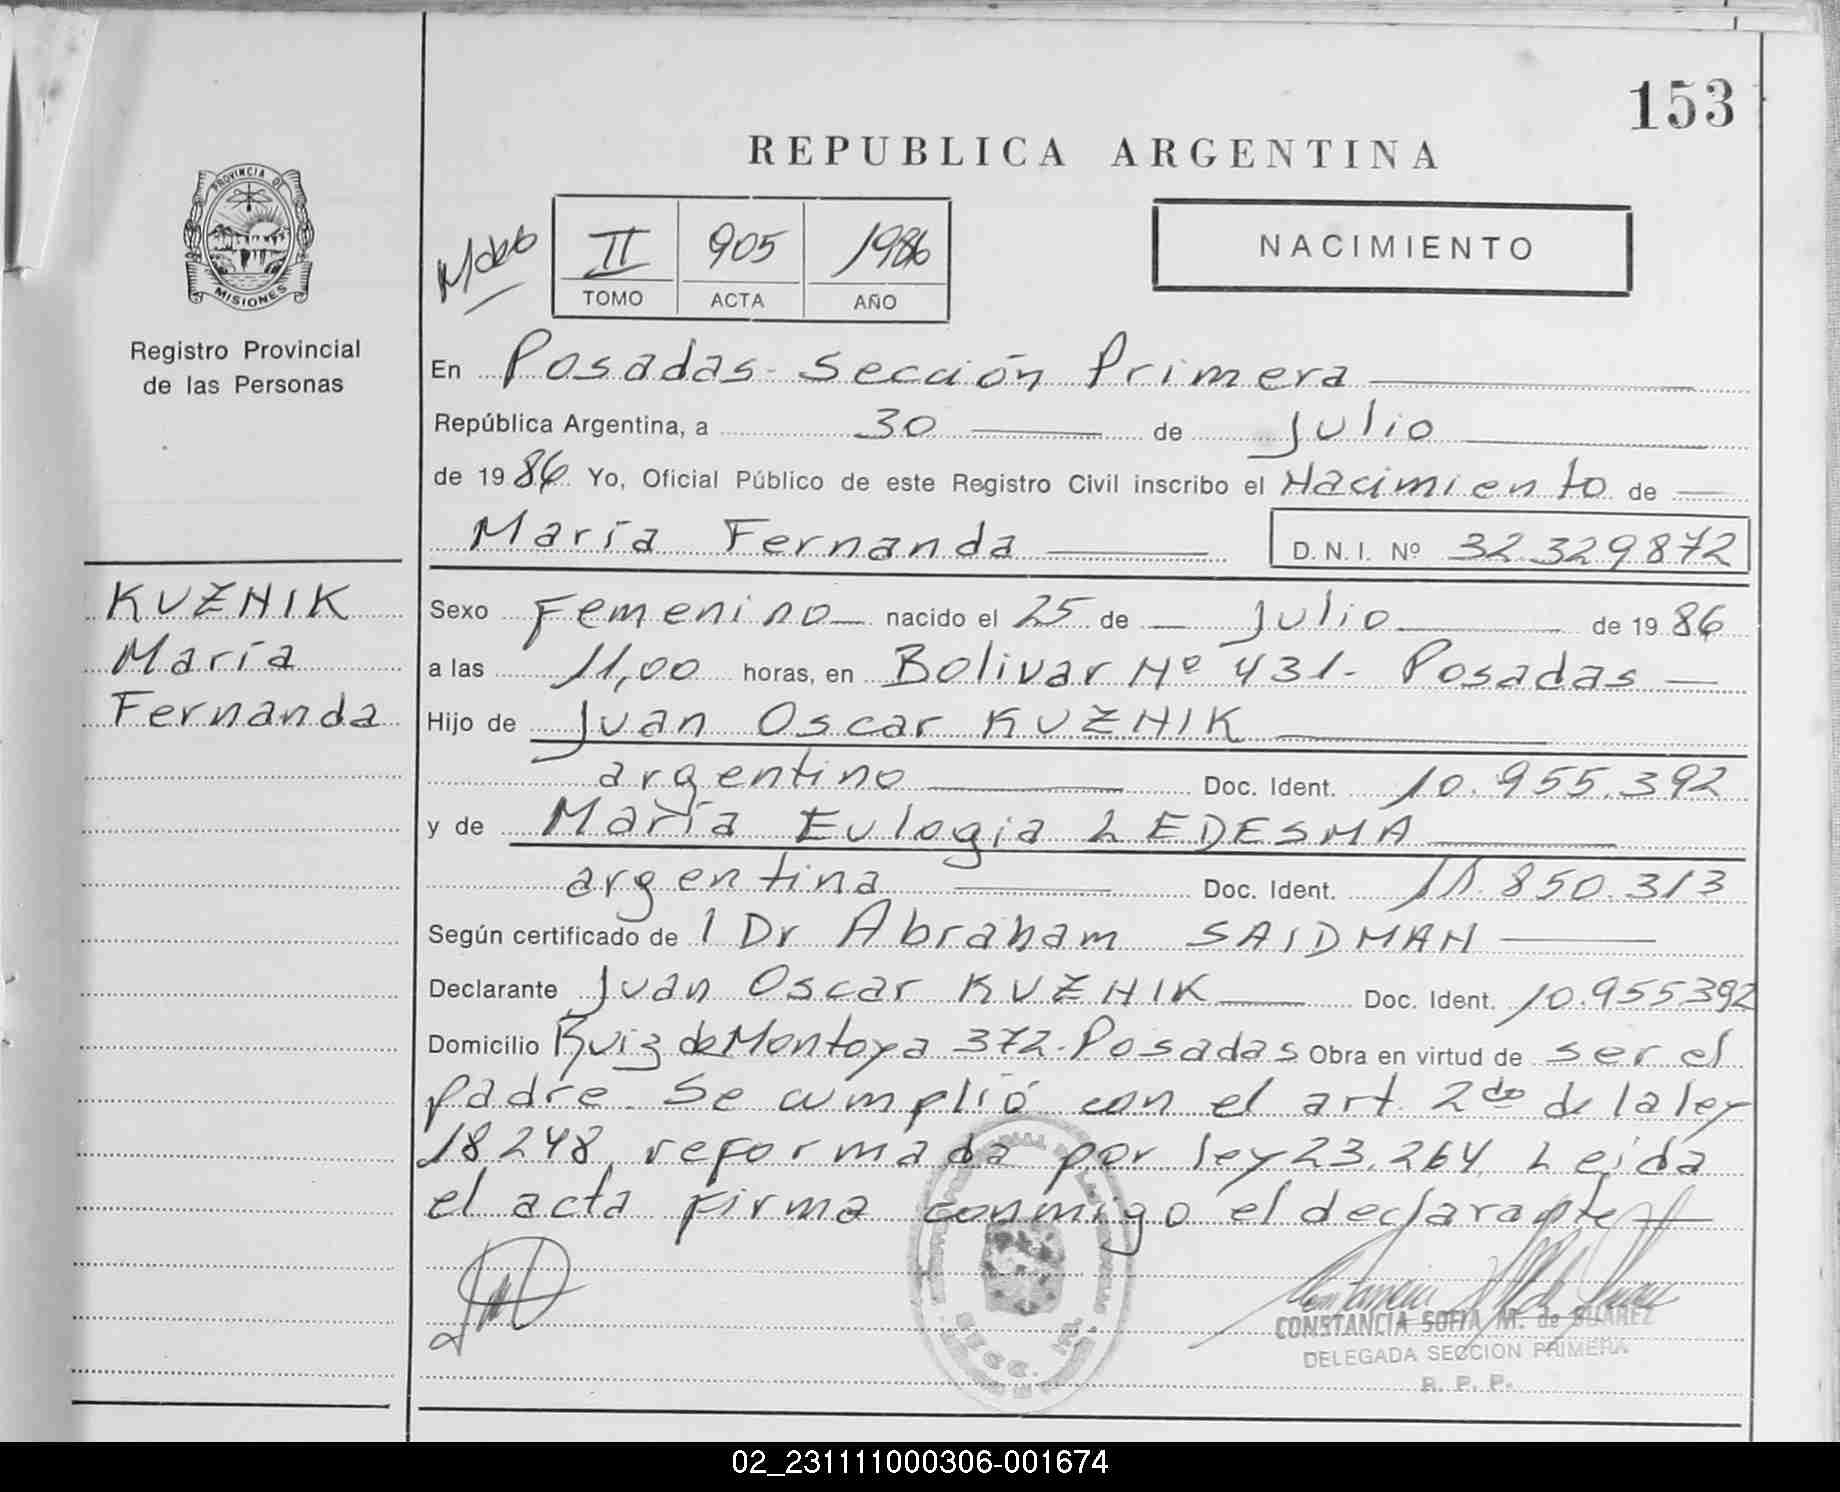 153
REPUBLICA ARGENTINA
PROVINCIA DE
MISIONES
Registro Provincial
de las Personas
II 905 1986
TOMO ACTA AÑO
NACIMIENTO
En Posadas - Sección Primera
República Argentina, a 30 de Julio
de 1986 Yo, Oficial Público de este Registro Civil inscribo el Nacimiento de
María Fernanda D.N.I. Nº 32.329872
KUZNIK
María
Fernanda
Sexo Femenino nacido el 25 de Julio de 1986
a las 11,00 horas, en Bolivar Nº 431- Posadas
Hijo de Juan Oscar KUZNIK
argentino Doc. Ident. 10.955.392
y de María Eulogia LEDESMA
argentina Doc. Ident. 11.850.313
Según certificado de 1 Dr Abraham SAIDMAN
Declarante Juan Oscar KUZNIK Doc. Ident. 10.955392
Domicilio Ruiz de Montoya 372. Posadas Obra en virtud de ser el
padre. Se cumplió con el art. 2do de la ley
18248, reformada por ley 23.264, Leída
el acta firma conmigo el declarante
CONSTANCIA SOFIA M. de SUAREZ
DELEGADA SECCION PRIMERA
R. P. P.
02_231111000306-001674